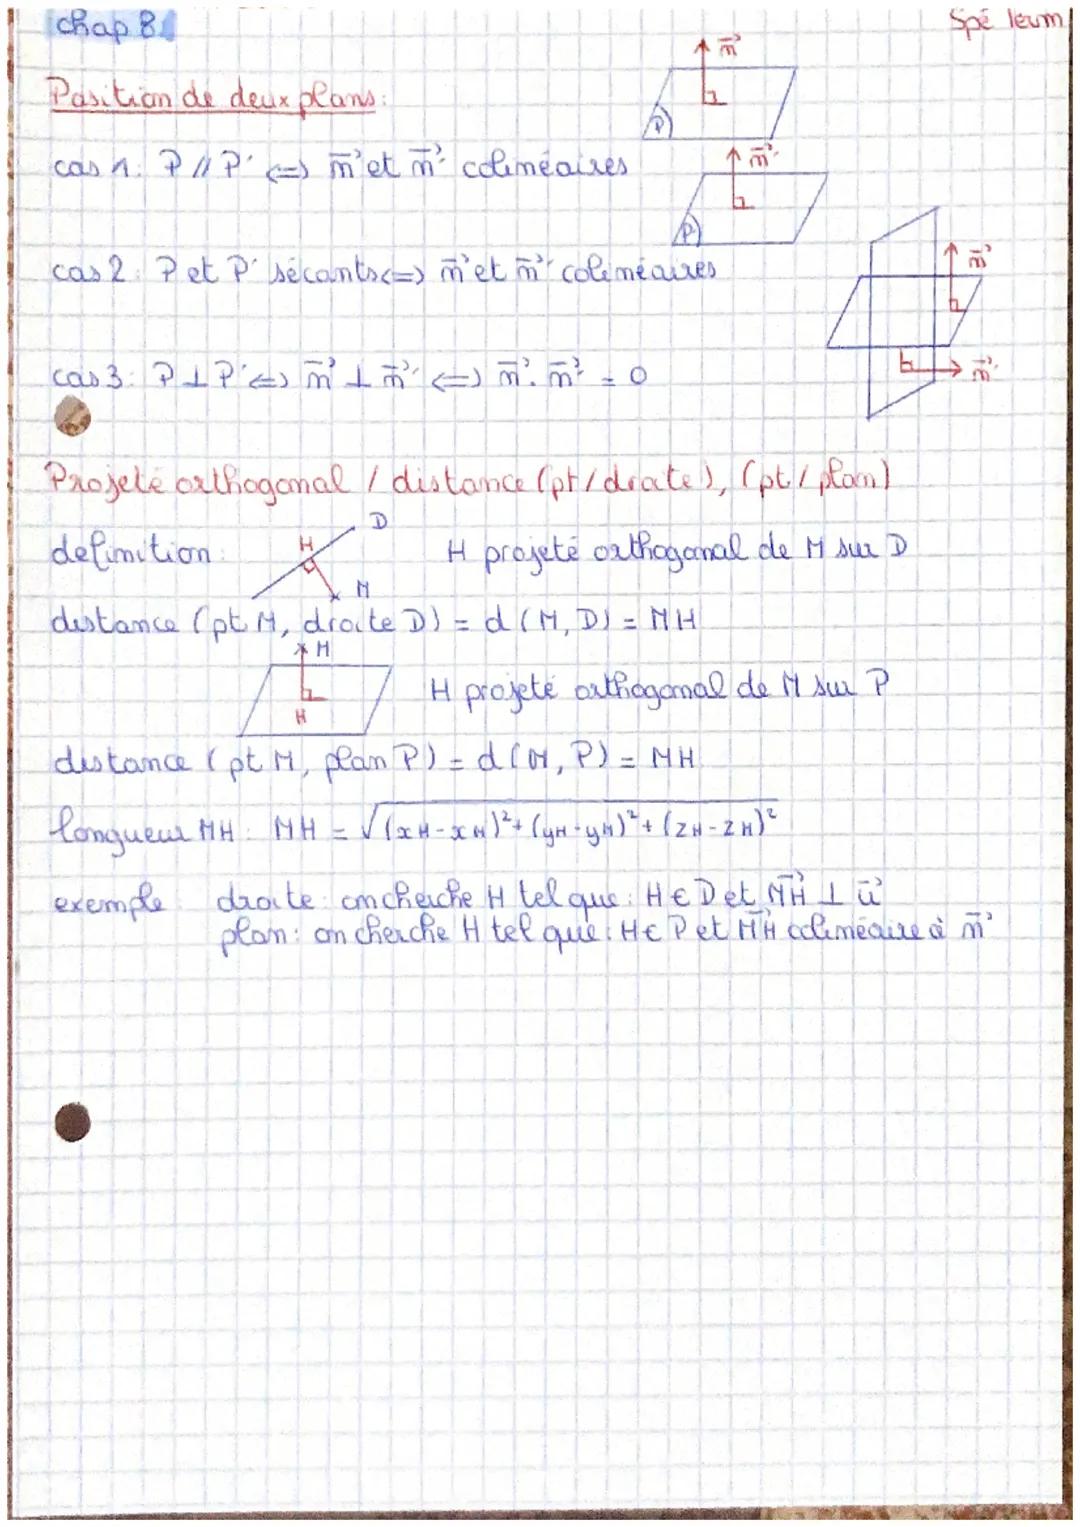 chap 8
Spé leum
Position de deux plans:
n⃗
P
cas 1: P // P' <=> n⃗ et n⃗' colinéaires
n⃗'
P'
cas 2: P et P' sécants <=> n⃗ et n⃗' colinéaires
n⃗
cas 3: P ⊥ P' <=> n⃗ ⊥ n⃗' <=> n⃗ . n⃗' = 0
n⃗'
Projeté orthogonal / distance (pt / droite), (pt / plan)
D
definition: H
H projeté orthogonal de M sur D
M
distance (pt M, droite D) = d(M, D) = MH
M
H projeté orthogonal de M sur P
H
distance (pt M, plan P) = d(M, P) = MH
longueur MH: MH = √(xH - xM)² + (yH - yM)² + (zH - zM)²
exemple: droite: on cherche H tel que: H ∈ D et MH⃗ ⊥ u⃗
plan: on cherche H tel que: H ∈ P et MH⃗ colinéaire à n⃗